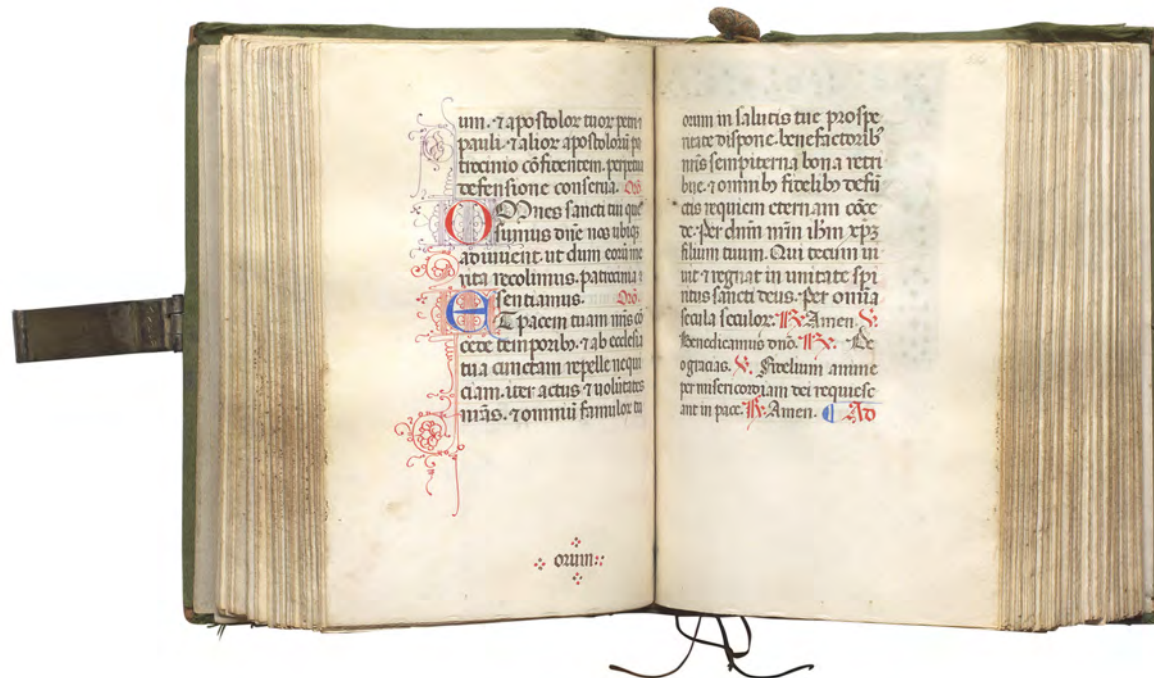 um. ⁊ apostolor tuor petri ⁊
pauli. ⁊ alior apostoloru pa
trocinio cõfidentem. perpetua
defensione conserva. Orõ
OMnes sancti tui que
sumus dñe nos ubiqȝ
adiuuent. ut dum eorũ me
rita recolimus. patrocinia
sentiamus. Orõ.
Et pacem tuam nr̃is cõ
cede temporibȝ. ⁊ ab ecclesia
tua cunctam repelle nequi
ciam. iter actus ⁊ uolũtates
nr̃as. ⁊ omniũ famulor tu
orum
orum in salutis tue prospe
ritate dispone. benefactoribȝ
nr̃is sempiterna bona retri
bue. ⁊ omnibȝ fidelibȝ defũ
ctis requiem eternam cõce
de. Per dñm nr̃m ihm xpȝ
filium tuum. Qui tecum ui
uit ⁊ regnat in unitate spi
ritus sancti deus. Per om̃ia
secula seculor. R. Amen. V.
Benedicamus dnõ. R. De
o gracias. V. Fidelium anime
per misericordiam dei requiesc
ant in pace. R. Amen. Ad